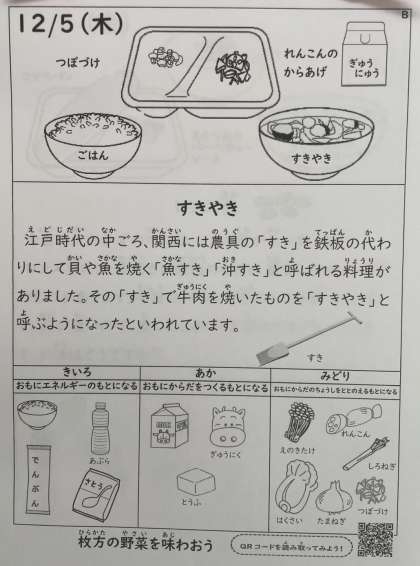 12/5(木)
B
つぼづけ
れんこんの
からあげ
ぎゅう
にゅう
ごはん
すきやき
すきやき
江戸時代の中ごろ、関西には農具の「すき」を鉄板の代わ
りにして貝や魚を焼く「魚すき」「沖すき」と呼ばれる料理が
ありました。その「すき」で牛肉を焼いたものを「すきやき」と
呼ぶようになったといわれています。
すき
きいろ
おもにエネルギーのもとになる
あぶら
でんぷん
さとう
あか
おもにからだをつくるもとになる
ぎゅうにく
とうふ
みどり
おもにからだのちょうしをととのえるもとになる
えのきたけ
れんこん
しろねぎ
はくさい
たまねぎ
つぼづけ
枚方の野菜を味わおう
QRコードを読み取ってみよう!